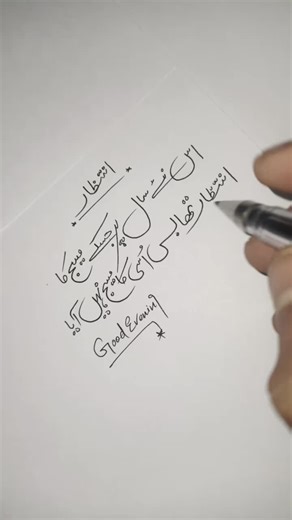 انتظار
اس نئے سال پر جسکے میسج کا
انتظار تھا بس اسی کا میسج نہیں آیا
Good Evening